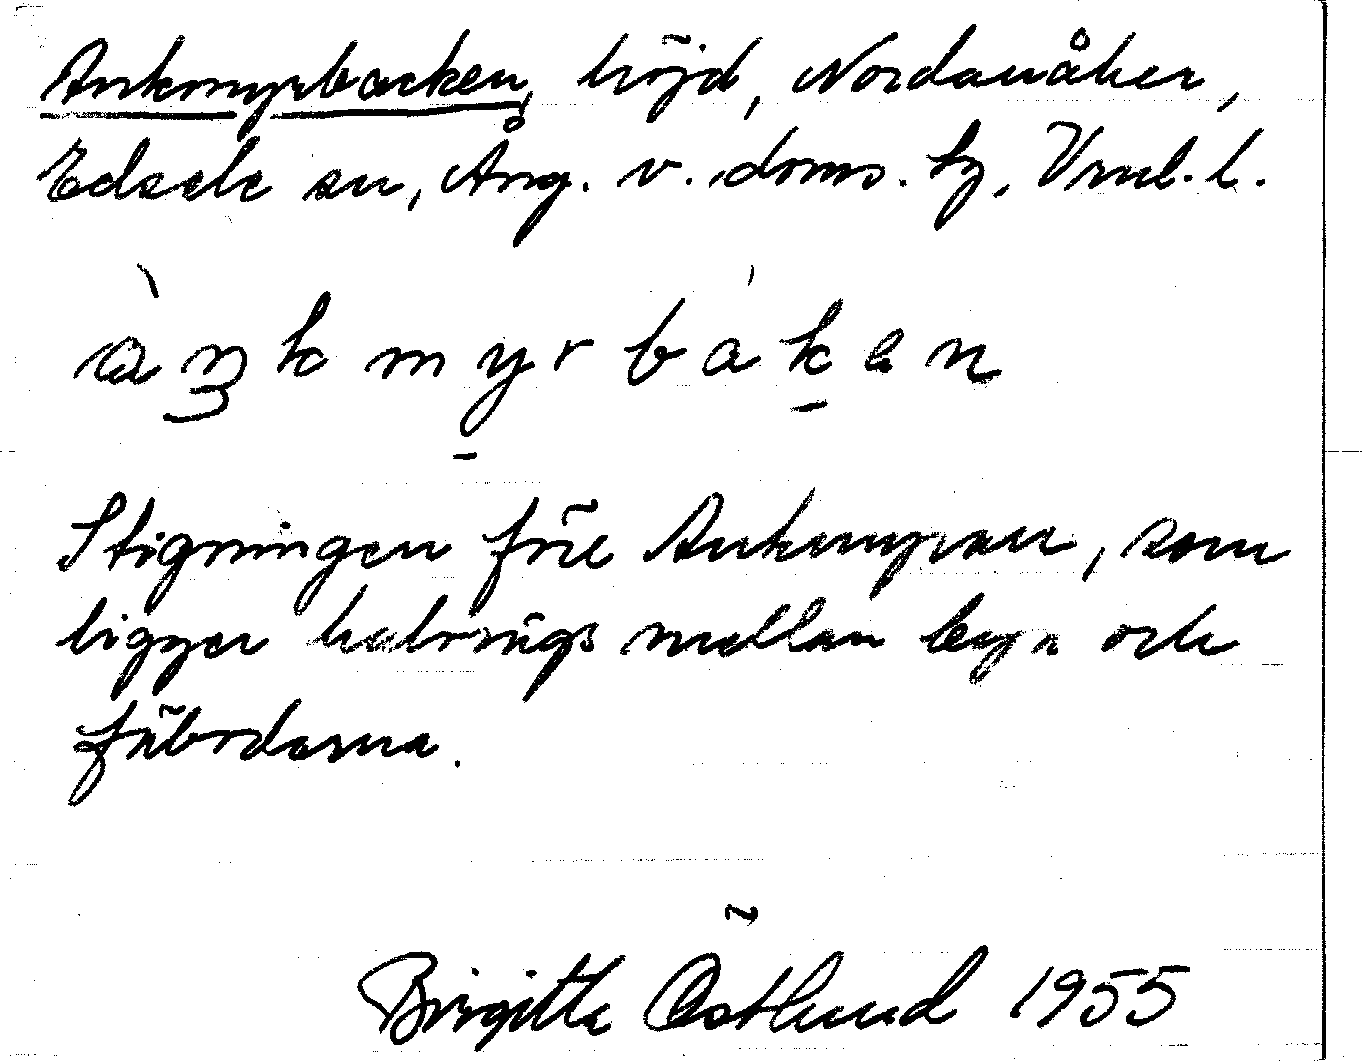 Ankmyrbacken, höjd, Nordanåker,
Edsele sn, Ång. v. doms. hg, Vnrl. l.
àŋkmyrbákan
Stigningen före Ankmyran, som
ligger halvvägs mellan byn och
fäbodarna.
Birgitta Östlund 1955